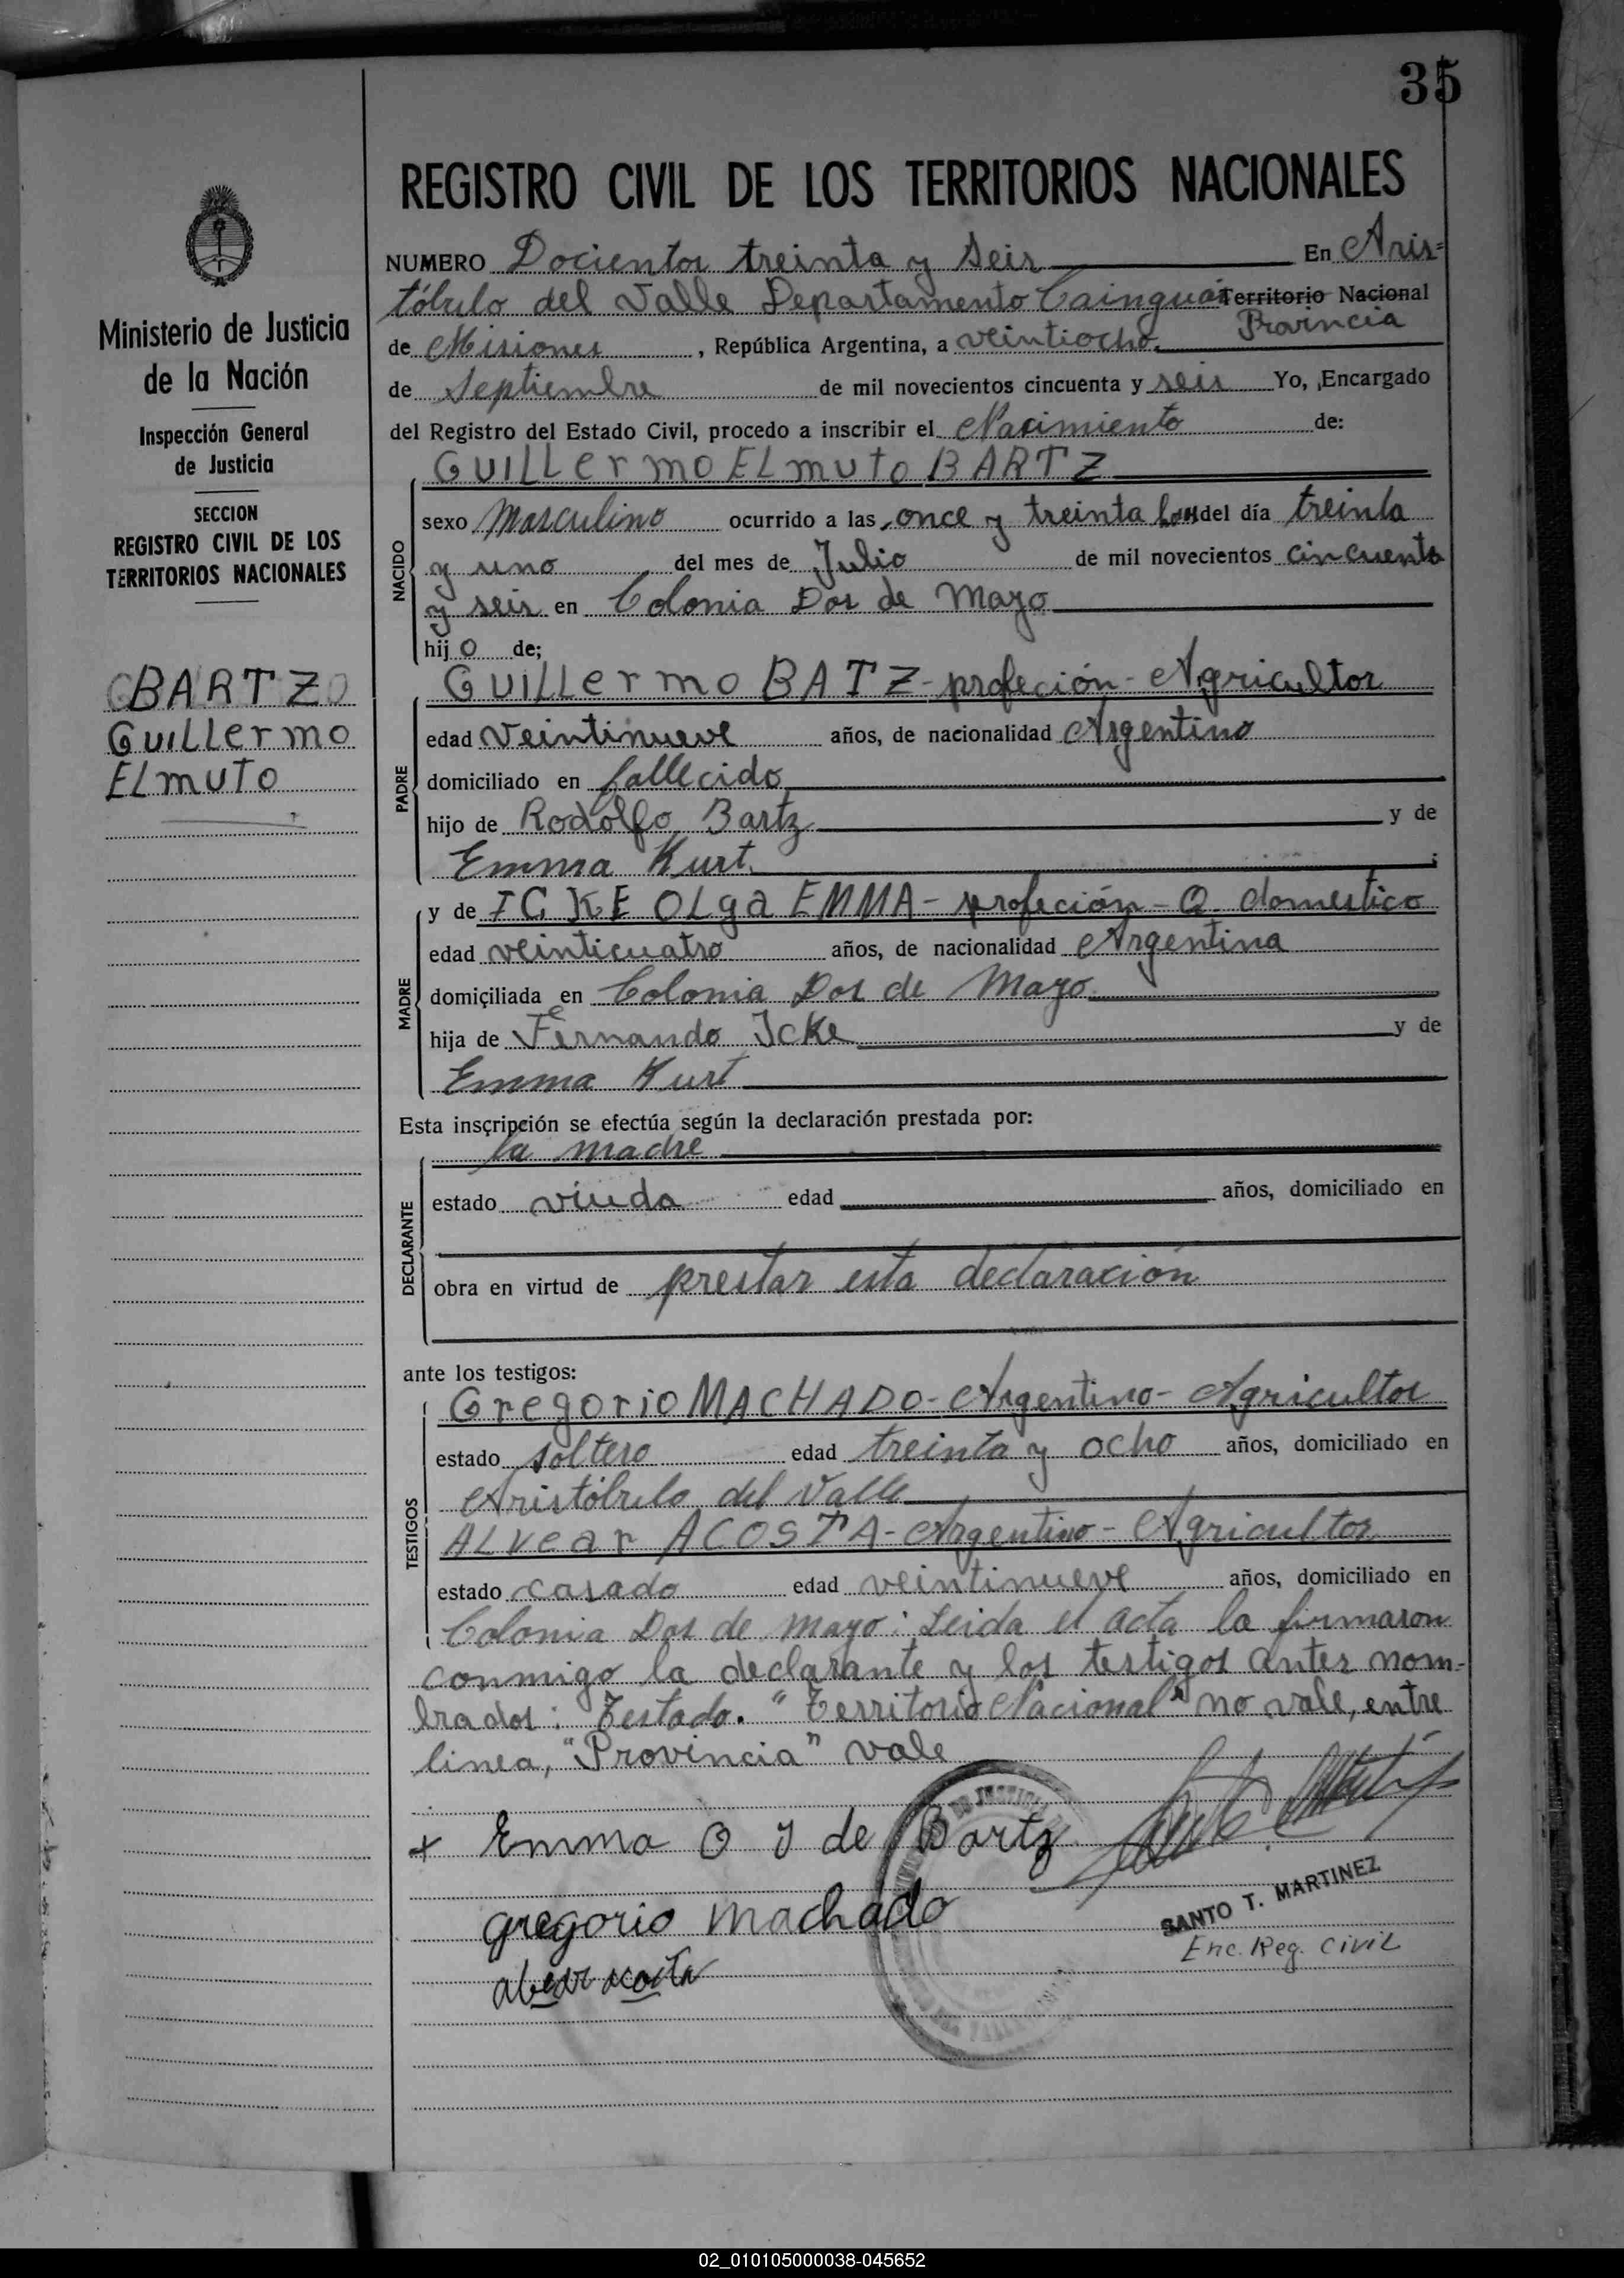 35
REGISTRO CIVIL DE LOS TERRITORIOS NACIONALES
Ministerio de Justicia
de la Nación
Inspección General
de Justicia
SECCION
REGISTRO CIVIL DE LOS
TERRITORIOS NACIONALES
BARTZ
Guillermo
Elmuto
NUMERO Docientos treinta y Seis En Aris=
tóbulo del Valle Departamento Cainguás Territorio Nacional
Provincia
de Misiones, República Argentina, a veintiocho
de Septiembre de mil novecientos cincuenta y seis Yo, Encargado
del Registro del Estado Civil, procedo a inscribir el Nacimiento de:
NACIDO
Guillermo Elmuto BARTZ
sexo Masculino ocurrido a las once y treinta horas del día treinta
y uno del mes de Julio de mil novecientos cincuenta
y seis en Colonia Dos de Mayo
hijo de;
PADRE
Guillermo BATZ - profeción - Agricultor
edad Veintinueve años, de nacionalidad Argentino
domiciliado en fallecido
hijo de Rodolfo Bartz y de
Emma Kurt.
MADRE
y de ICKE OLga EMMA - profeción - Q. domestico
edad veinticuatro años, de nacionalidad Argentina
domiciliada en Colonia Dos de Mayo
hija de Fernando Icke y de
Emma Kurt
Esta inscripción se efectúa según la declaración prestada por:
DECLARANTE
la madre
estado viuda edad años, domiciliado en
obra en virtud de prestar esta declaración
ante los testigos:
TESTIGOS
Gregorio MACHADO - Argentino - Agricultor
estado soltero edad treinta y ocho años, domiciliado en
Aristóbulo del Valle
ALvear ACOSTA - Argentino - Agricultor
estado casado edad veintinueve años, domiciliado en
Colonia Dos de Mayo: Leida el acta la firmaron
conmigo la declarante y los testigos antes nom-
brados: Testado. "Territorio Nacional" no vale, entre
linea, "Provincia" vale
+ Emma O J de Bartz
gregorio machado
alvear acosta
SANTO T. MARTINEZ
Enc. Reg. Civil
02_010105000038-045652